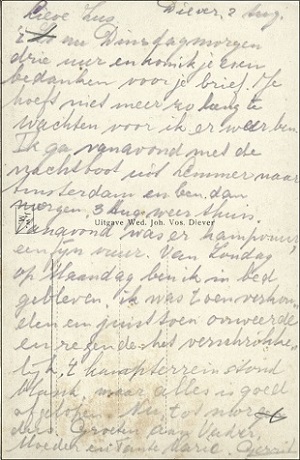 Lieve Zus, Diever, 2 Aug.
nu Dinsdagmorgen
drie uur en kom ik je even
bedanken voor je brief. Je
hoeft niet meer zo lang te
wachten voor ik er weer ben.
Ik ga vanavond met de
nachtboot uit Lemmer naar
Amsterdam en ben dan
morgen, 3 Aug. weer thuis.
Uitgave Wed. Joh. Vos. Diever
was er kampvuur,
een fijn vuur. Van Zondag
op Maandag ben ik in bed
gebleven. ik was toen verkou-
den en juist toen onweerde
en regende het verschrikke-
lijk, 't kampterrein stond
blank, maar alles is goed
afgelopen. Nu, tot
Groeten aan Vader,
Moeder en Tante Marie. Gerrit